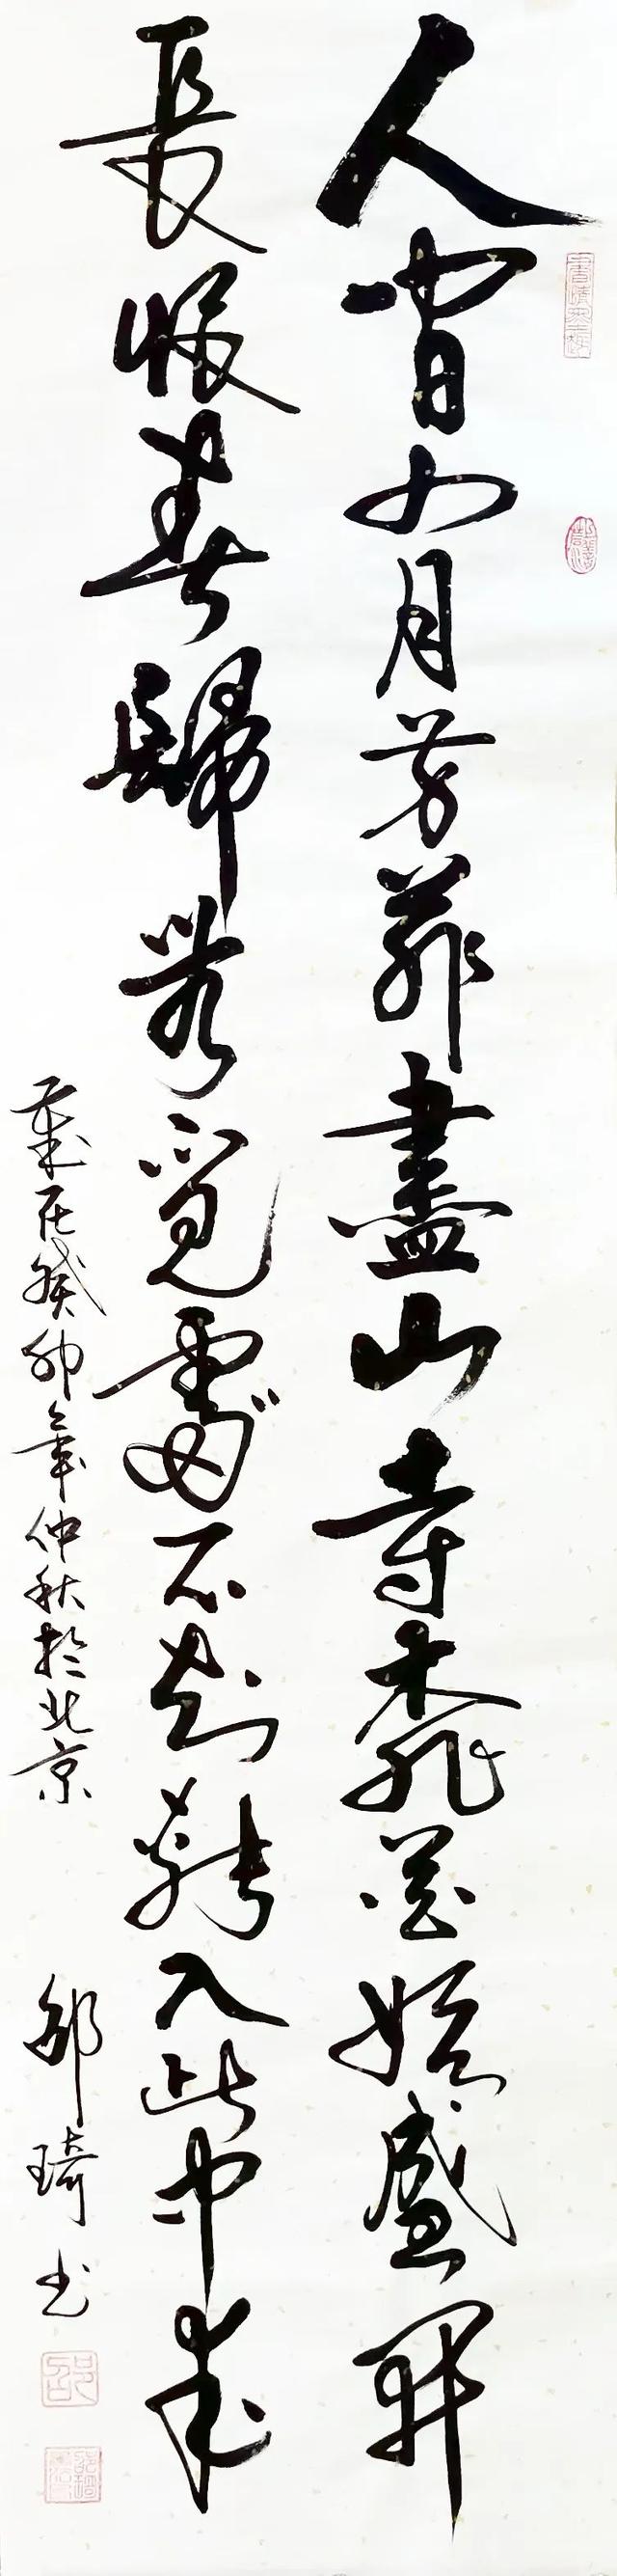 人間四月芳菲盡山寺桃花始盛開
長恨春歸無覓處不知轉入此中來
歲在癸卯年仲秋於北京 邵琦书